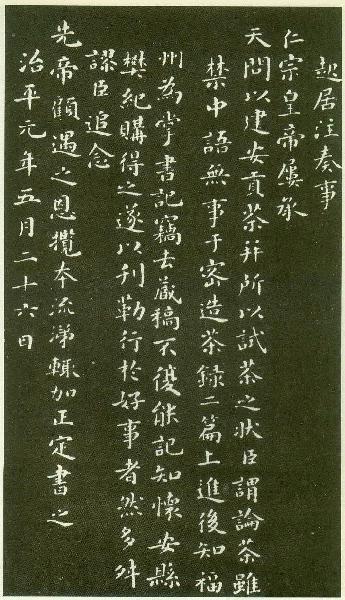 起居注奏事
仁宗皇帝屢承
天問以建安貢茶并所以試茶之狀臣謂論茶雖
禁中語無事于密造茶録二篇上進後知福
州為掌書記竊去藏稿不復能記知懷安縣
樊紀購得之遂以刊勒行於好事者然多舛
謬臣追念
先帝顧遇之恩攬本流涕輒加正定書之
治平元年五月二十六日